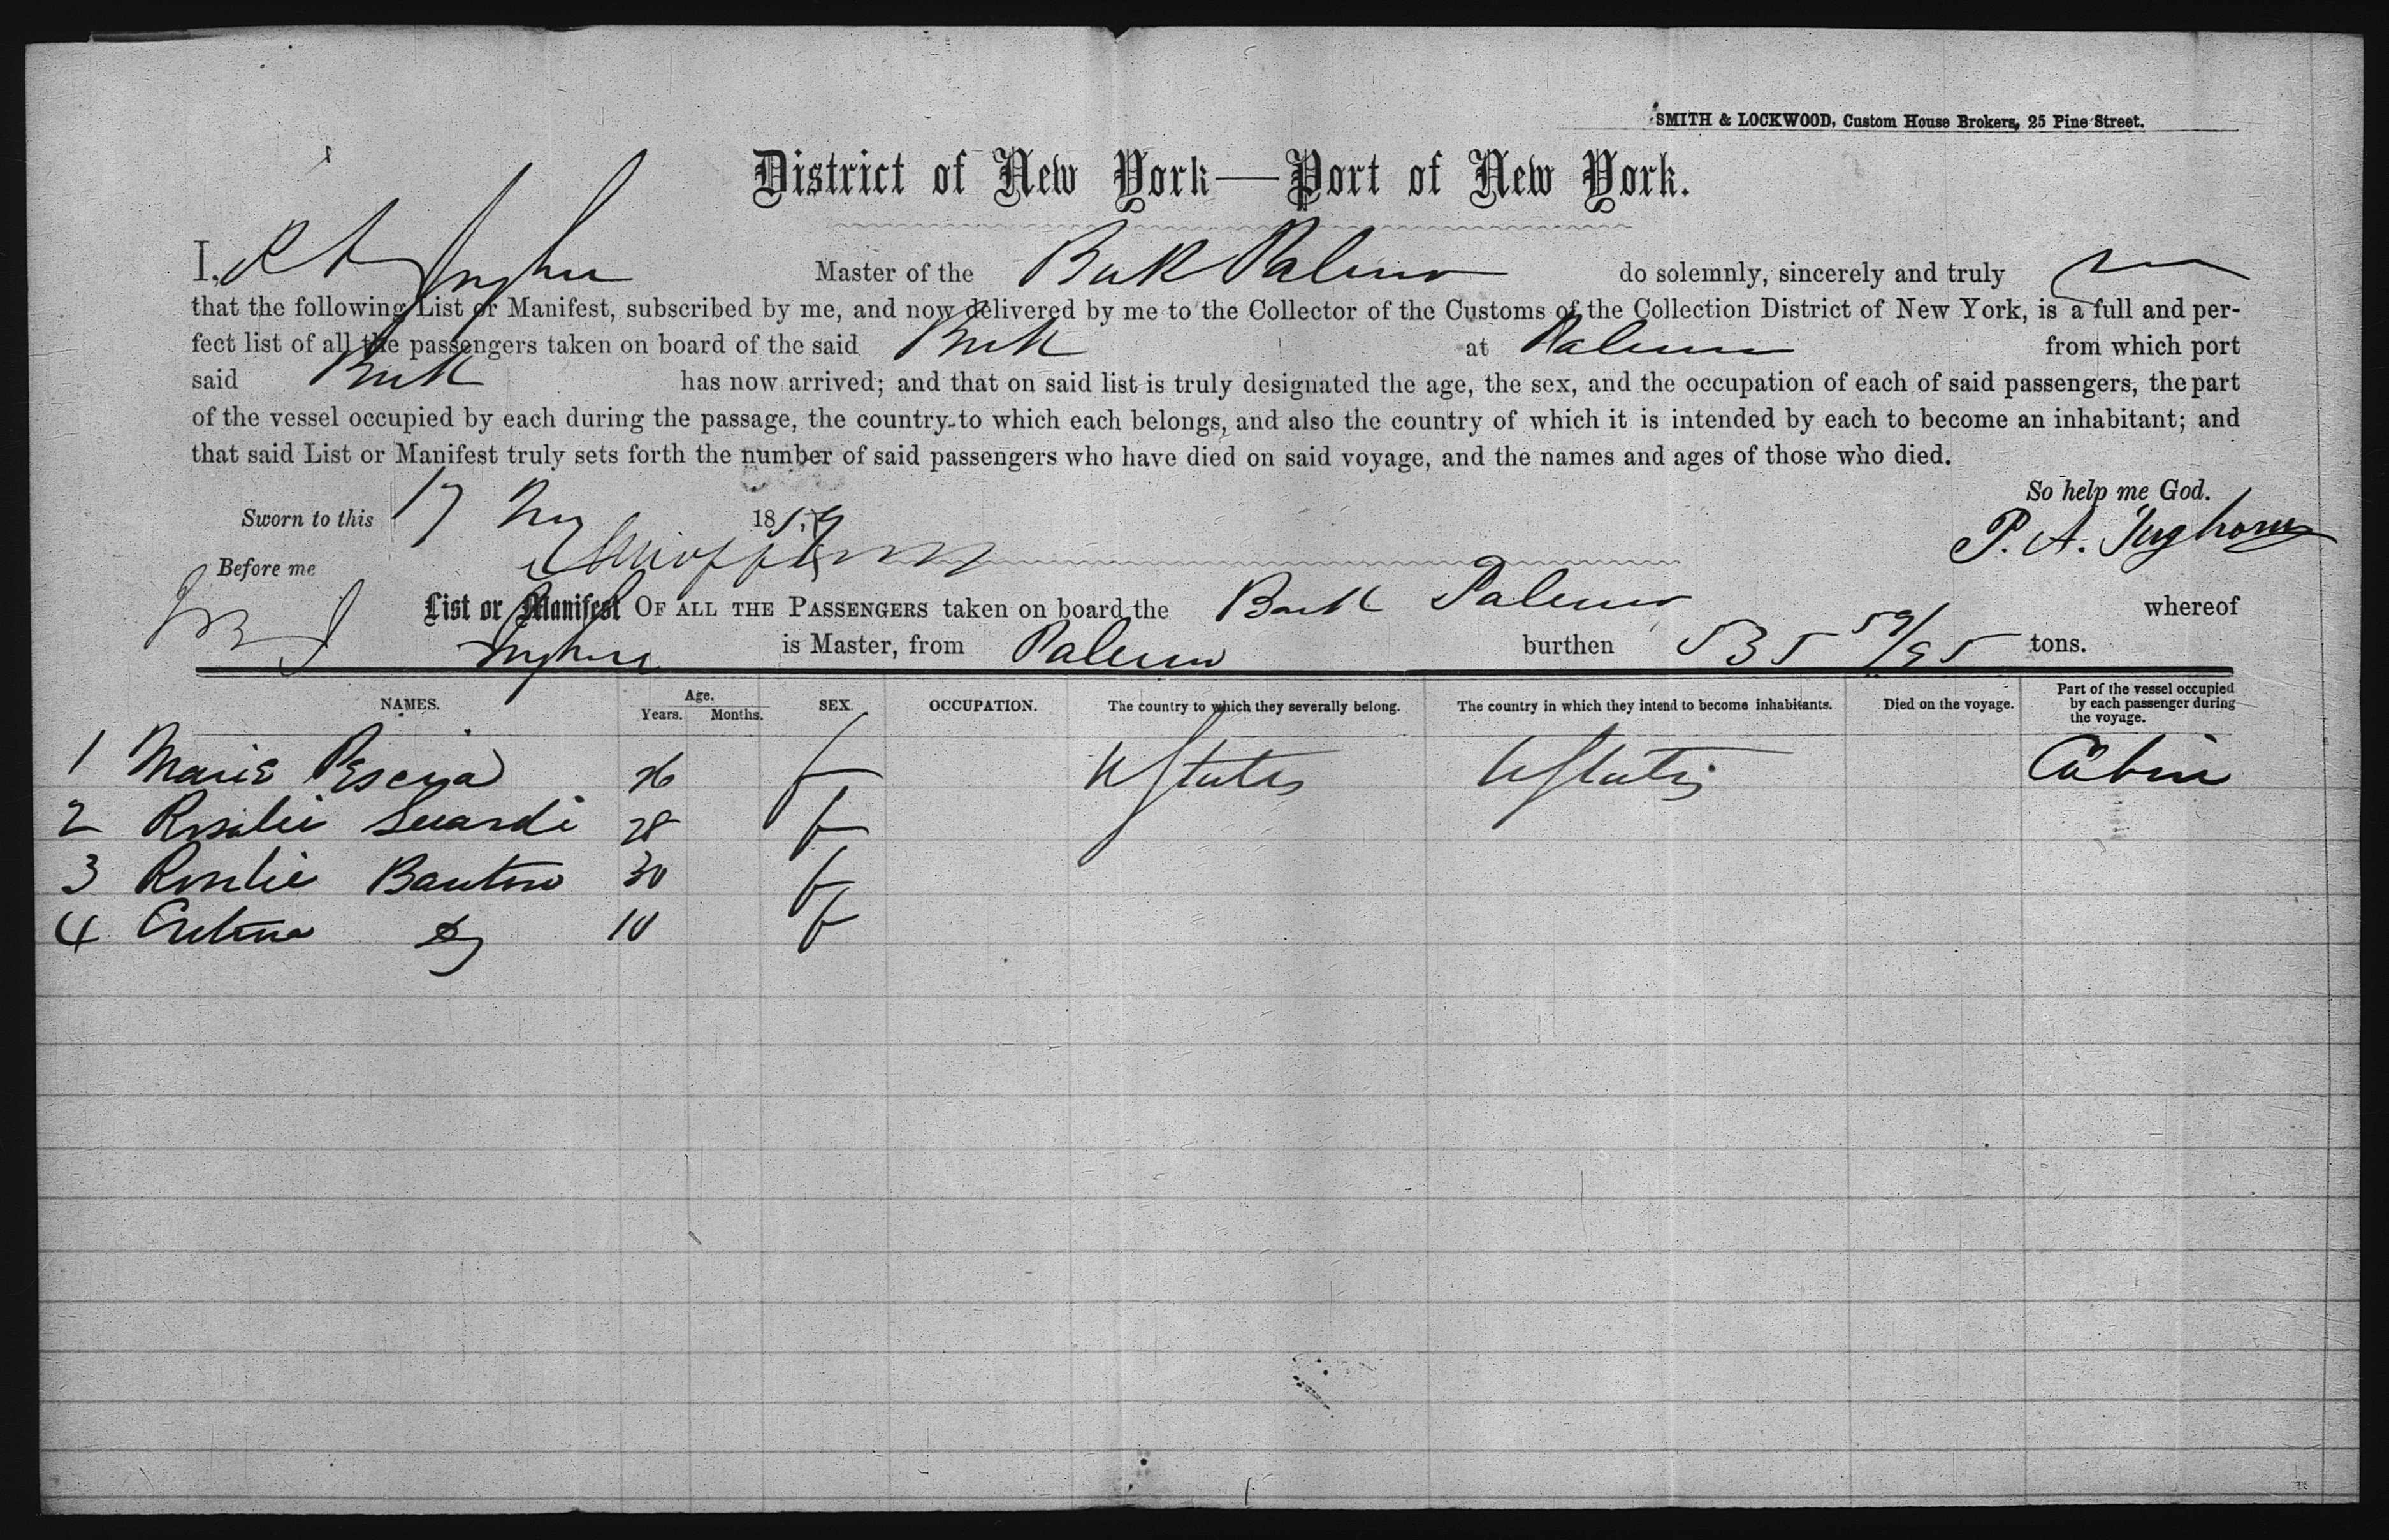 SMITH & LOCKWOOD, Custom House Brokers, 25 Pine Street.
District of New York—Port of New York.
I, Master of the Bark Palermo do solemnly, sincerely and truly
that the following List or Manifest, subscribed by me, and now delivered by me to the Collector of the Customs of the Collection District of New York, is a full and per-
fect list of all the passengers taken on board of the said Bark at Palermo from which port
said Bark has now arrived; and that on said list is truly designated the age, the sex, and the occupation of each of said passengers, the part
of the vessel occupied by each during the passage, the country to which each belongs, and also the country of which it is intended by each to become an inhabitant; and
that said List or Manifest truly sets forth the number of said passengers who have died on said voyage, and the names and ages of those who died.
So help me God.
Sworn to this 17 18
P. A.
Before me
List or Manifest OF ALL THE PASSENGERS taken on board the Bark Palermo whereof
is Master, from Palermo burthen 535 59/95 tons.
NAMES. Age. Years. Months. SEX. OCCUPATION. The country to which they severally belong. The country in which they intend to become inhabitants. Died on the voyage. Part of the vessel occupied by each passenger during the voyage.
1 Marie 26 f U States U States Cabin
2 Rosalie 28 f
3 Rosalie 30 f
4 Do 10 f